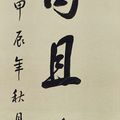 且
甲辰年秋月